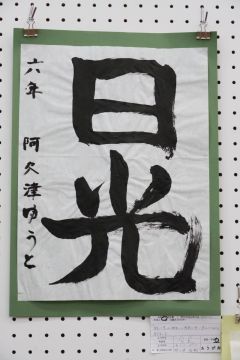 日光
六年 阿久津ゆうと